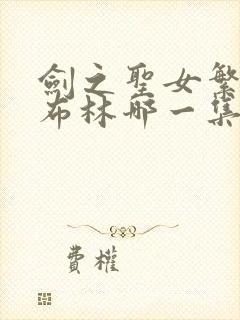 劍之聖女繁
布林哪一集
費權